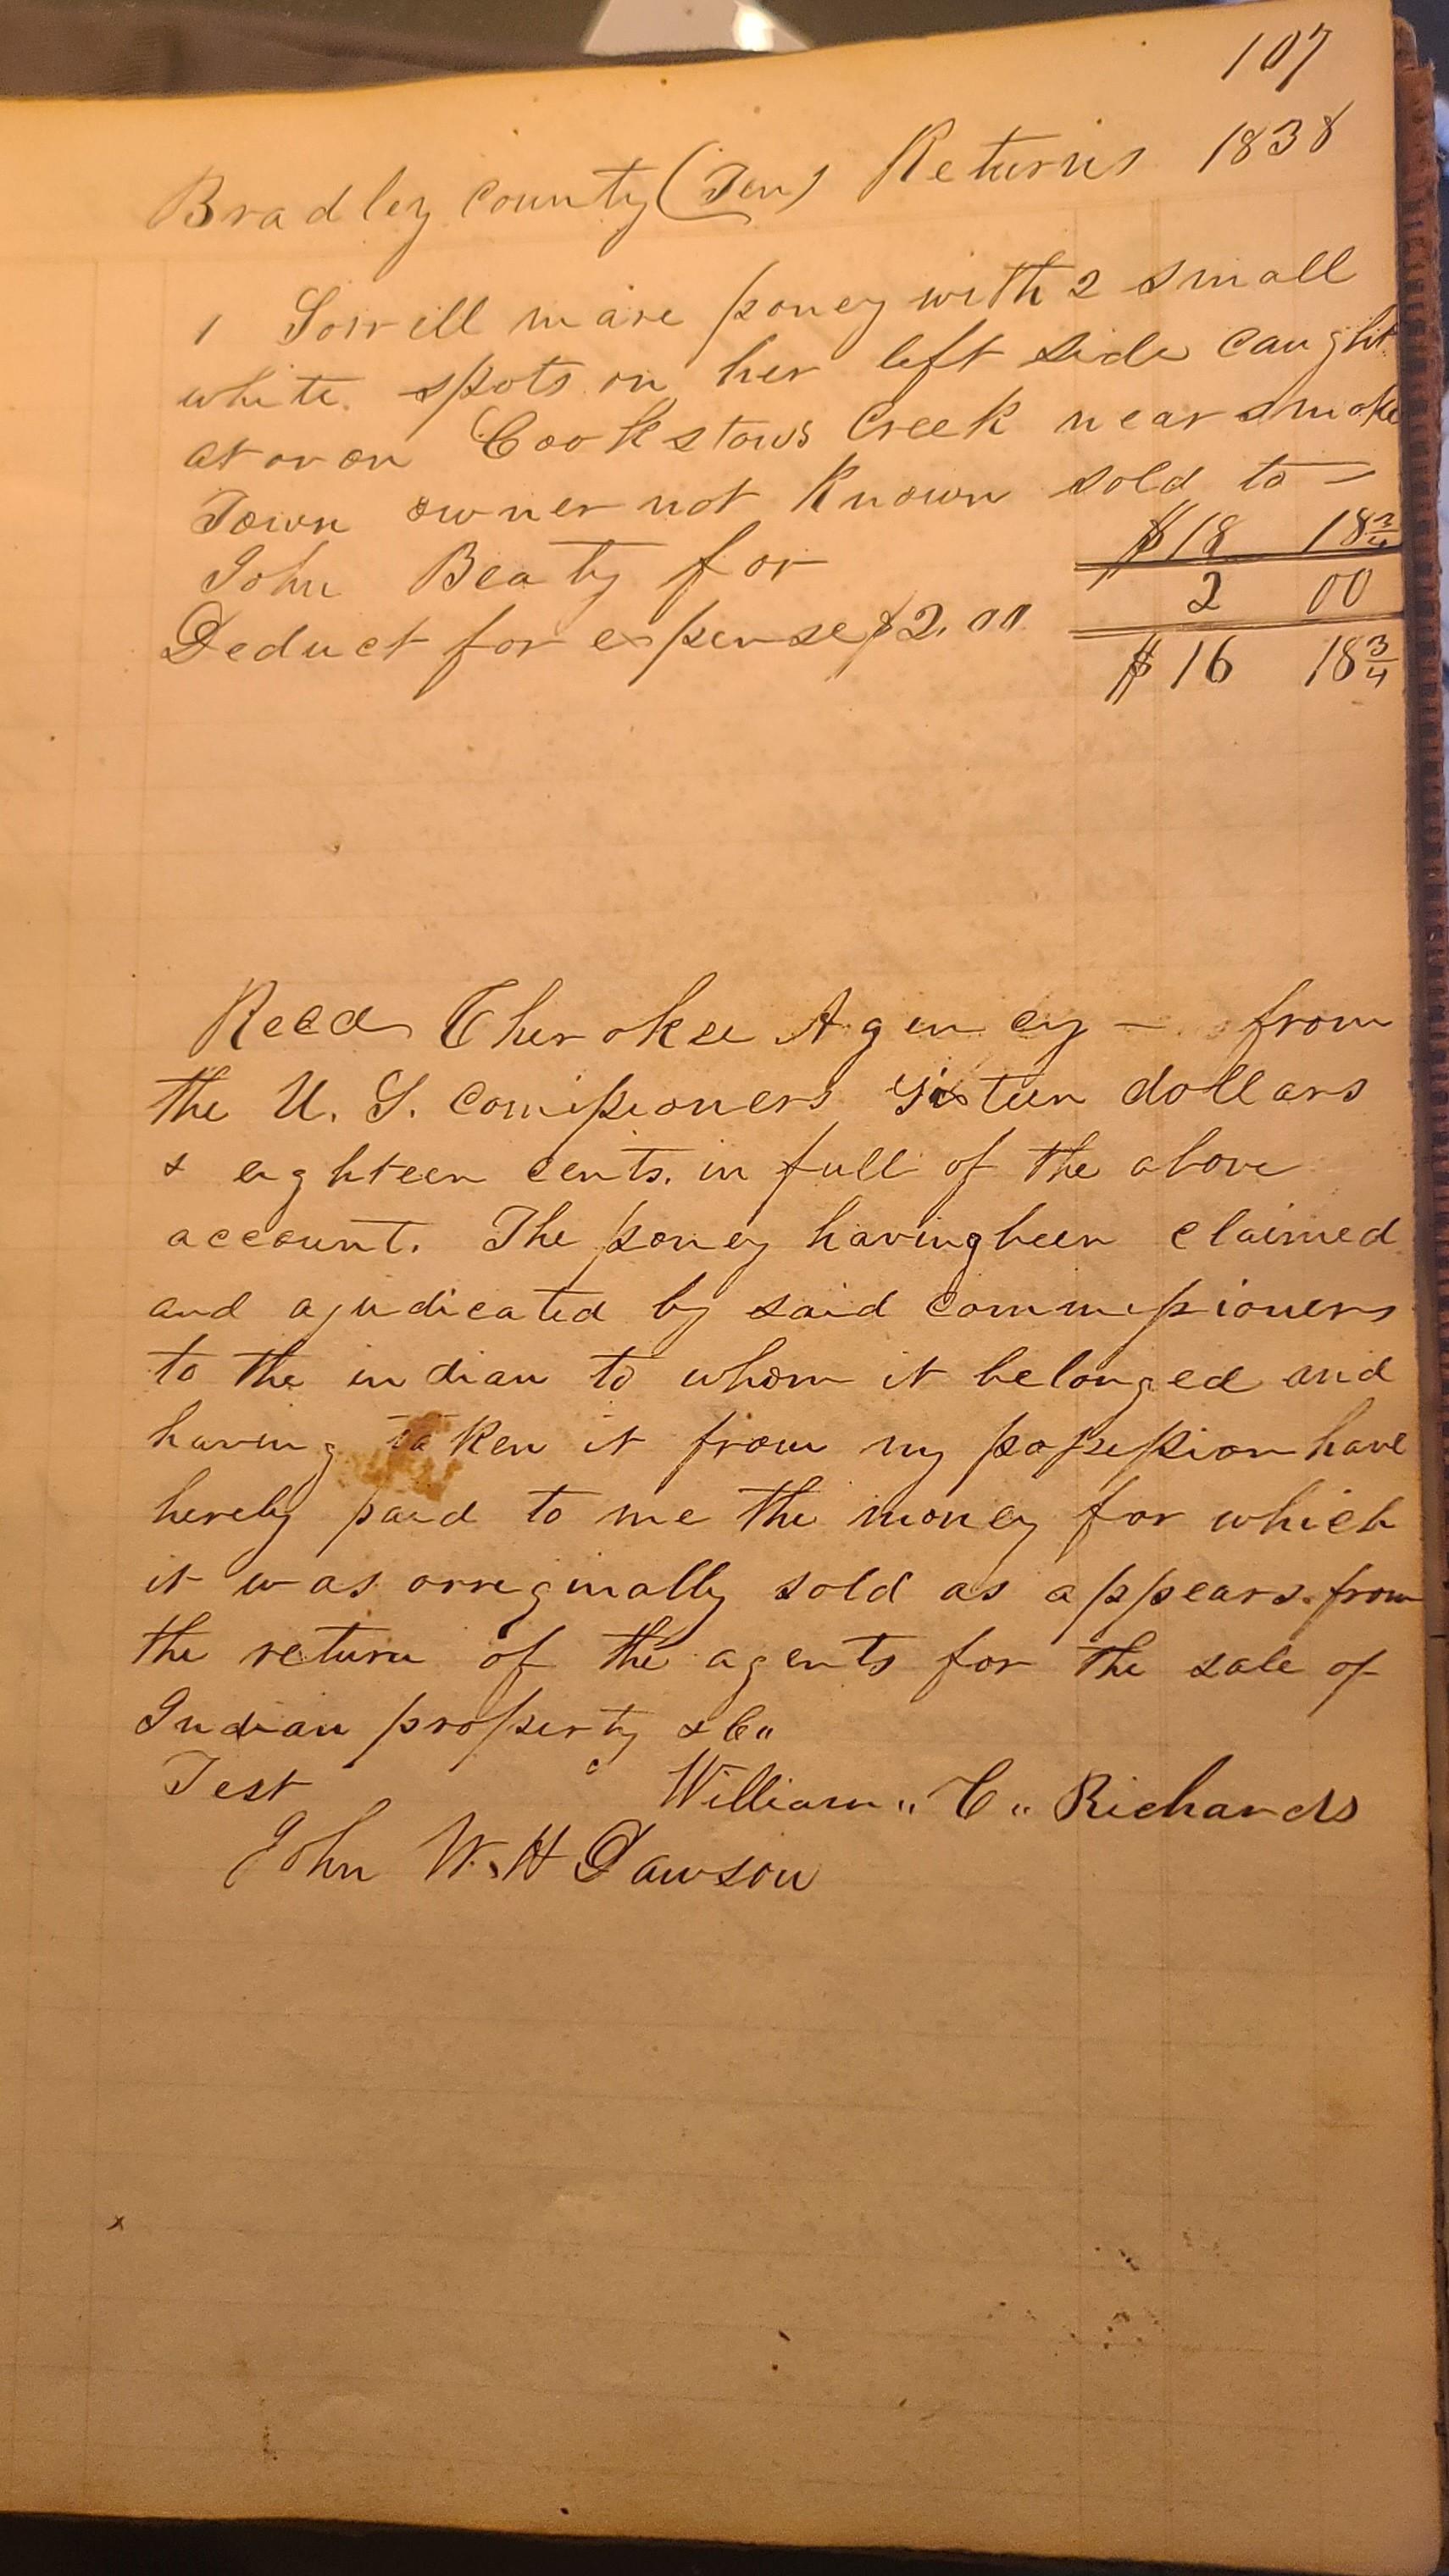 107
Bradley County (Ten) Returns 1838
1 Sorrill mare poney with 2 small
white spots on her left side caught
at or on Cookstows Creek near smoke
Town owner not Known sold to —
John Beaty for $18 18 3/4
Deduct for expense $2.00 2 00
$16 18 3/4
Recd Cherokee Agency — from
the U. S. Comissioners Sixteen dollars
& eighteen cents. in full of the above
account. The poney having been claimed
and ajudicated by said commissioners
to the indian to whom it belonged and
having taken it from my possession have
hereby paid to me the money for which
it was orriginally sold as appears from
the return of the agents for the sale of
Indian property &C"
Test William " C " Richards
John W. H Dawson
x